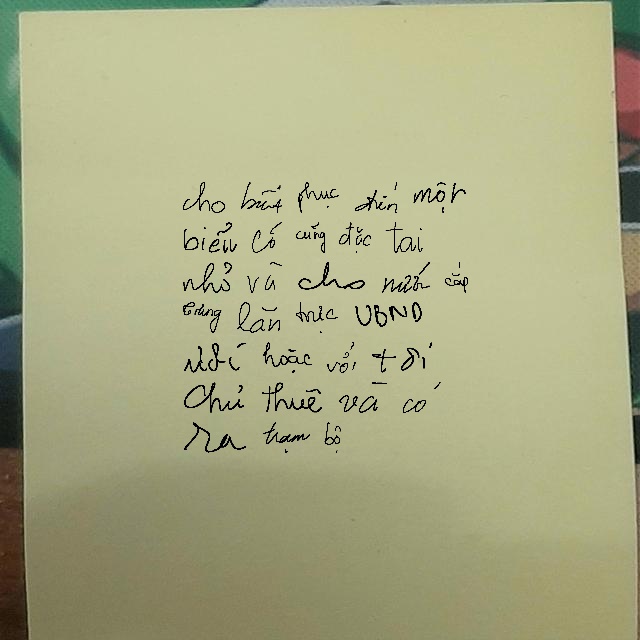 cho biết phục đến một
biểu có cũng đặc tai
nhỏ và cho nước cấp
trùng lần trực UBND
với hoặc với tôi
Chủ thuê và có
ra trạm bộ